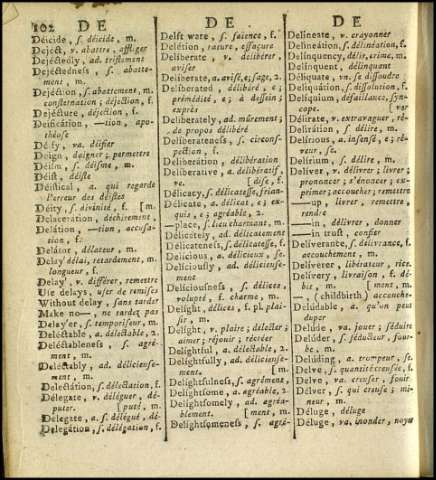 102 D E
D E
D E
Déicide, s. déicide, m.
Dejéct, v. abattre, affliger
Dejéctedly, ad. tristement
Dejéctedness, s. abatte-
ment, m.
Dejéction, s. abattement, m.
consternation; déjection, f.
Dejécture, déjection, f.
Deification, —tion, apo-
théose
Déify, va. déifier
Deign, daigner; permettre
Déism, s. déisme, m.
Déist, déiste
Déistical, a. qui regarde
l'erreur des déistes
Déity, s. divinité, f. [m.
Delaceration, déchirement,
Delátion, —tion, accusa-
tion, f.
Delátor, délateur, m.
Delay' délai, retardement, m.
longueur, f.
Delay' v. différer, remettre
Use delays, user de remises
Without delay, sans tarder
Make no—, ne tardez pas
Delay'er, s. temporiseur, m.
Deléctable, a. délectable, 2.
Deléctableness, s. agré-
ment, m.
Deléctably, ad. déliciense-
ment, m.
Delectátion, s. délectation, f.
Délegate, v. déléguer, dé-
puter. [puté, m.
Délegate, a. s. délégué, dé-
Delegátion, s. délégation, f.
Delft ware, s. faïence, f.
Delétion, rature, essaçure
Deliberate, v. delibérer,
aviser
Deliberate, a. avisé, e; sage, 2.
Deliberated, délibéré, e;
prémédité, e; à dessein;
exprès
Deliberately, ad. mûrement;
de propos délibéré
Deliberateness, s. circons-
pection, f.
Deliberátion, délibération
Deliberative, a. délibératif
[dise, f.
Délicacy, s. délicatesse, frian-
Délicate, a. délicat, e; ex-
quis, e; agréable, 2.
—place, s. lieu charmant, m.
Délicately, ad. délicatement
Délicateness, s. délicatesse, f.
Delícious, a. délicieux, se.
Delíciously, ad. déliciense-
ment
Delíciousness, s. délices,
volupté, f. charme, m.
Delíght, délices, f. pl. plai-
sir, m.
Delíght, v. plaire; délecter;
aimer; réjouir; récréer
Delíghtful, a. délectable, 2.
Delíghtfully, ad. déliciense-
ment. [m.
Delíghtfulness, s. agrément,
Delíghtsome, a. agréable, 2.
Delíghtsomely, ad. agréa-
blement. [ment, m.
Delíghtsomeness, s. agré-
Delineate, v. crayonner
Delineátion, s. délinéation, f.
Delinquency, délit, crime, m.
Delinquent, délinquant
Déliquate, vn. se dissoudre
Deliquátion, s. dissolution, f.
Deliquium, défaillance, syn-
cope. [ver
Delírate, v. extravaguer, rê-
Delirátion, s. délire, m.
Delírious, a. insensé, e; rê-
veur, se.
Delírium, s. délire, m.
Delíver, v. délivrer; livrer;
prononcer; s'énoncer; ex-
primer; accoucher; remettre
——up, livrer, remettre,
rendre
——in, délivrer, donner
——in trust, confier
Delíverance, s. délivrance, f.
accouchement, m.
Delíverer, libérateur, rice.
Delívery, livraison, f. dé-
bit, m. [ment, m.
—, (childbirth) accouche-
Delúdable, a. qu'on peut
duper
Delúde, va. jouer; séduire
Delúder, s. séducteur, four-
be, m.
Delúding, a. trompeur, se.
Delve, s. quantité creusée, f.
Delve, va. creuser, fouir
Délver, s. qui creuse; mi-
neur, m.
Déluge, déluge
Déluge, va. inonder, noyer